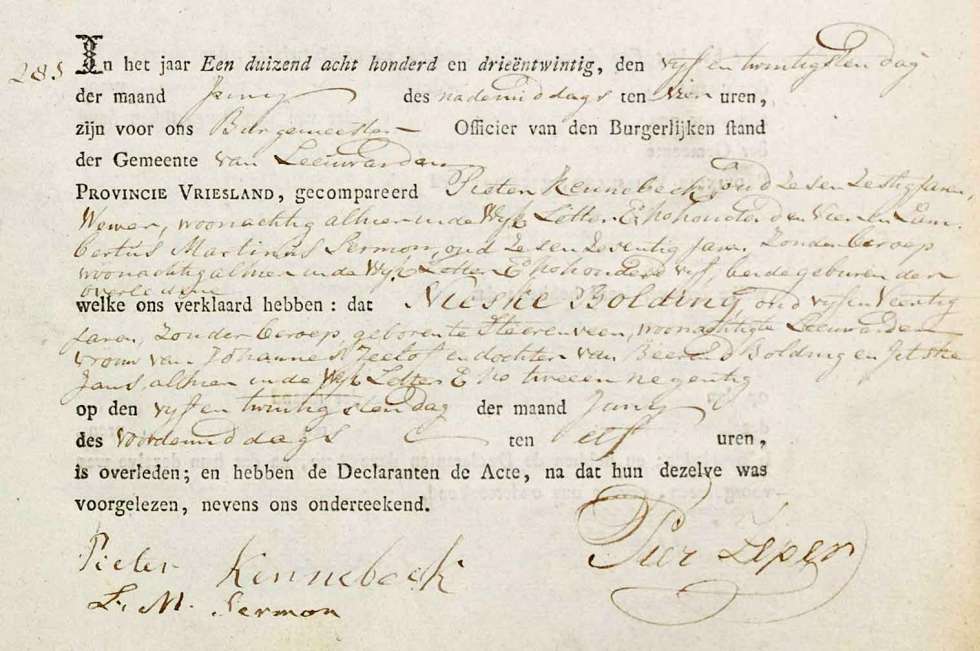 285 In het jaar Een duizend acht honderd en drieëntwintig, den vyf en twintigsten dag
der maand Juny des nademiddags ten vier uren,
zijn voor ons Burgemeester Officier van den Burgerlijken stand
der Gemeente van Leeuwarden
PROVINCIE VRIESLAND, gecompareerd Pieter Kennebeck, oud zesen zestig Jaren
Wever, woonachtig alhier in de Wyk Letter E No honderd en Vier en Lam-
bertus Martinus Sermon, oud zesen zeventig Jaren Zonder beroep
woonachtig alhier in de Wyk Letter E No honderd vyf, beide geburen der
overledene
welke ons verklaard hebben: dat Nieske Bolding, oud vyf en Veertig
Jaren, Zonder beroep, geboren te Heerenveen, woonachtig te Leeuwarden
vrouw van Johannes en dochter van Beerend Bolding en Jetske
Jans, alhier in de Wyk Letter E No twee en negentig
op den vyf en twintigsten dag der maand Juny
des voordemiddags ten elf uren,
is overleden; en hebben de Declaranten de Acte, na dat hun dezelve was
voorgelezen, nevens ons onderteekend.
Pieter Kennebeck
Pier Zeper
L. M. Sermon